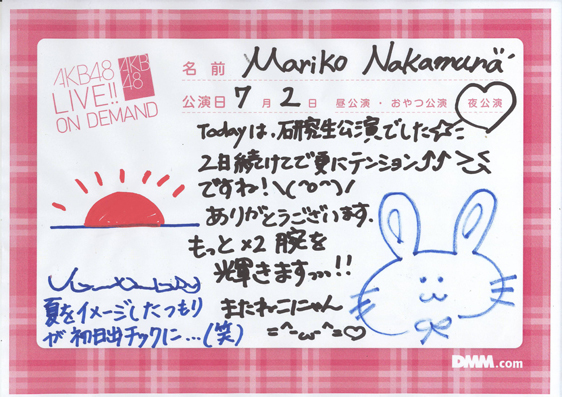 AKB48
LIVE!!
ON DEMAND
AKB
48
名前 Mariko Nakamura
公演日 7月2日 昼公演・おやつ公演 夜公演
Todayは、研究生公演でした☆ミ
2日続けてで更にテンション⤴⤴
ですね!\(^o^)/
ありがとうございます.
もっと×2 腕を
輝きますっっ...!!
またねこにゃん
=^-ω-^=♡
夏をイメージしたつもり
が初日出チックに...(笑)
DMM.com